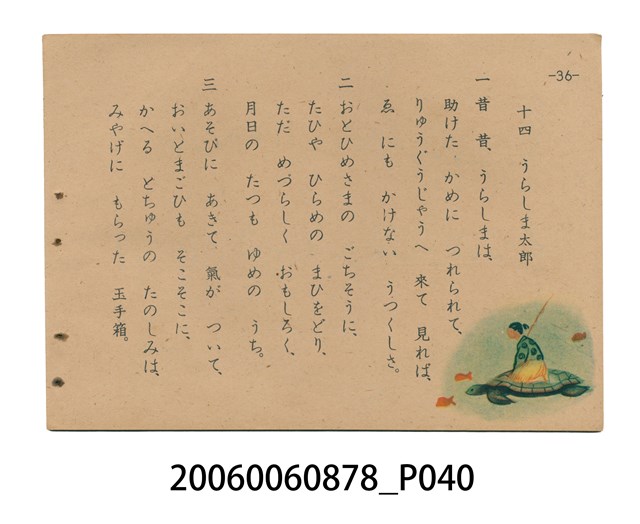 -36-
十四 うらしま太郎
一 昔 昔、うらしまは、
助けた かめに つれられて、
りゅうぐうじゃうへ 來て 見れば、
ゑ にも かけない うつくしさ。
二 おとひめさまの ごちそうに、
たひや ひらめの まひをどり、
ただ めづらしく おもしろく、
月日の たつも ゆめの うち。
三 あそびに あきて、氣が ついて、
おいとまごひも そこそこに、
かへる とちゅうの たのしみは、
みやげに もらった 玉手箱。
20060060878_P040